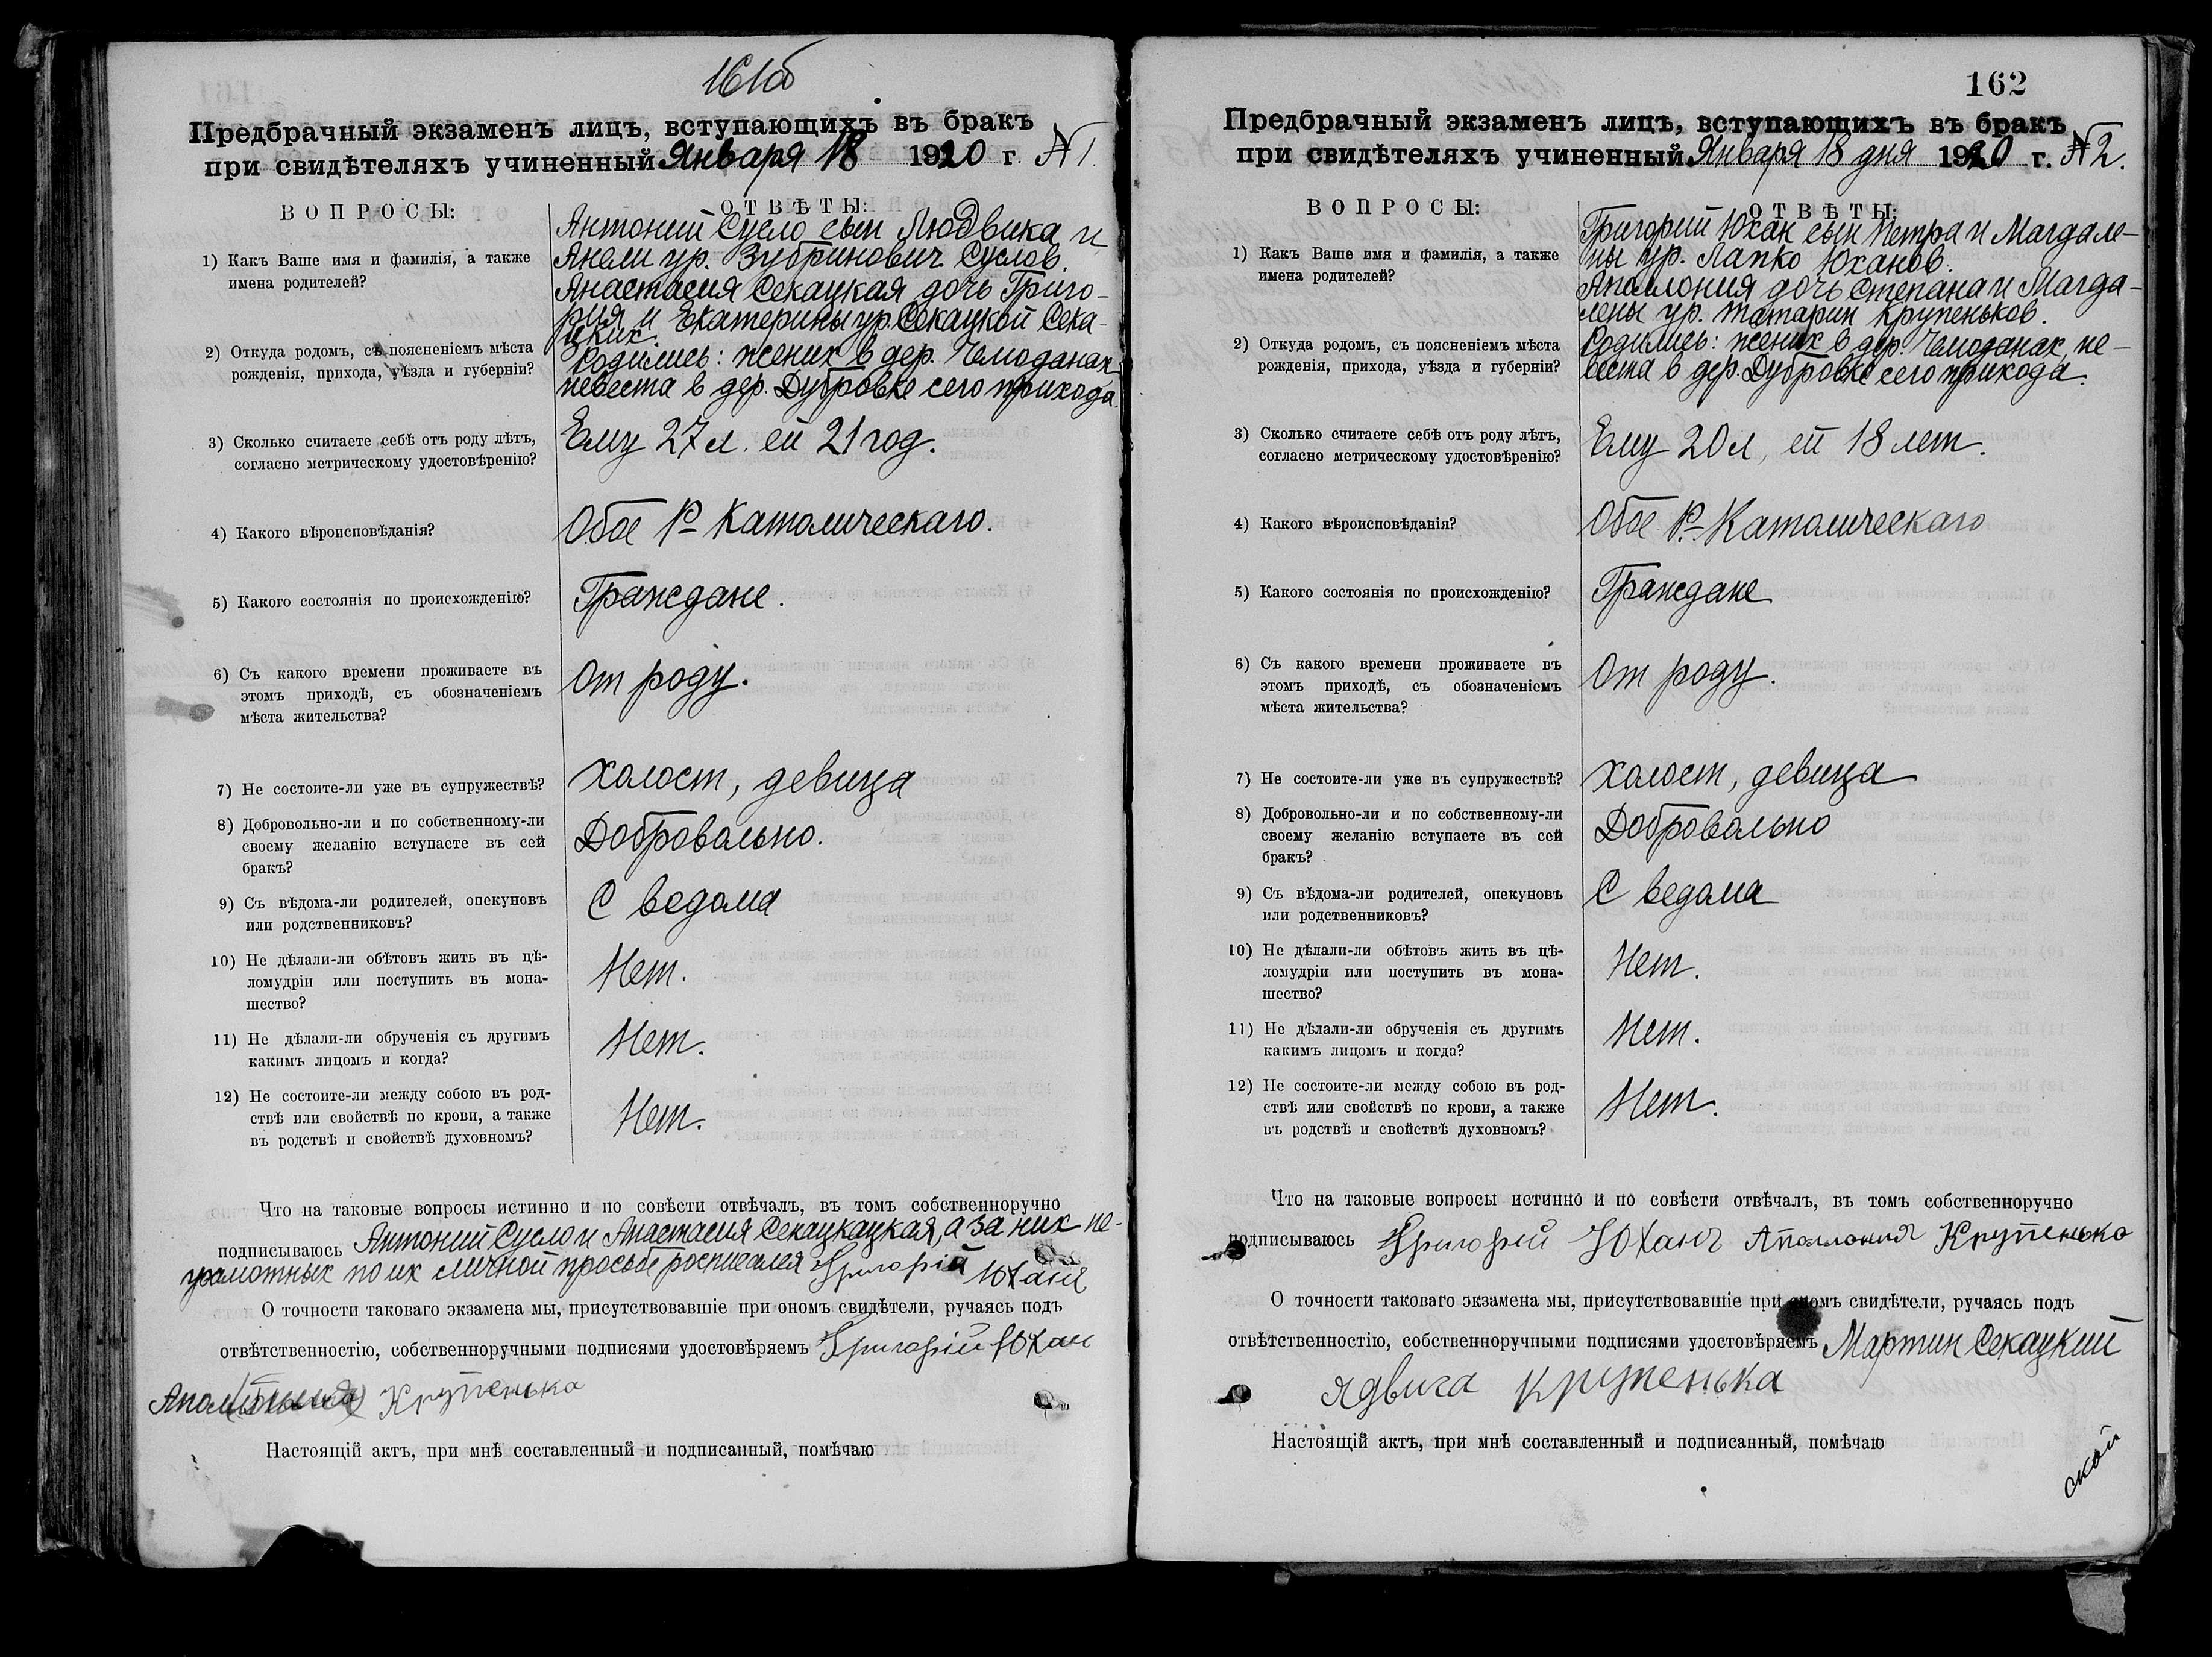 161об
Предбрачный экзаменъ лицъ, вступающихъ въ бракъ
при свидѣтеляхъ учиненный Января 18 1920 г. №1.
ВОПРОСЫ:
ОТВѢТЫ:
1) Какъ Ваше имя и фамилія, а также
имена родителей?
Антоний Сусло сын Людвика и
Анели ур. Зубринович Суслов.
Анастасия Секацкая дочь Григо-
рия и Екатерины ур. Секацкой Сека-
цких.
2) Откуда родомъ, съ поясненіемъ мѣста
рожденія, прихода, уѣзда и губерніи?
Родились: жених в дер. Чемоданах
невеста в дер. Дубровке сего прихода.
3) Сколько считаете себѣ отъ роду лѣтъ,
согласно метрическому удостовѣренію?
Ему 27 л. ей 21 год.
4) Какого вѣроисповѣданія?
Обое Р-Католическаго.
5) Какого состоянія по происхожденію?
Граждане.
6) Съ какого времени проживаете въ
этомъ приходѣ, съ обозначеніемъ
мѣста жительства?
От роду.
7) Не состоите-ли уже въ супружествѣ?
Холост, девица
8) Добровольно-ли и по собственному-ли
своему желанію вступаете въ сей
бракъ?
Добровольно.
9) Съ вѣдома-ли родителей, опекуновъ
или родственниковъ?
С ведома
10) Не дѣлали-ли обѣтовъ жить въ цѣ-
ломудріи или поступить въ мона-
шество?
Нет.
11) Не дѣлали-ли обрученія съ другимъ
какимъ лицомъ и когда?
Нет.
12) Не состоите-ли между собою въ род-
ствѣ или свойствѣ по крови, а также
въ родствѣ и свойствѣ духовномъ?
Нет.
Что на таковые вопросы истинно и по совѣсти отвѣчалъ, въ томъ собственноручно
подписываюсь Антоний Сусло и Анастасия Секацкацкая, а за них не-
грамотных по их личной просьбе росписался Григорій Юханъ
О точности таковаго экзамена мы, присутствовавшіе при ономъ свидѣтели, ручаясь подъ
отвѣтственностію, собственноручными подписями удостовѣряемъ Григорій Юхан
Крупенько
Настоящій актъ, при мнѣ составленный и подписанный, помѣчаю
162
Предбрачный экзаменъ лицъ, вступающихъ въ бракъ
при свидѣтеляхъ учиненный Января 18 дня 1920 г. №2.
ВОПРОСЫ:
ОТВѢТЫ:
1) Какъ Ваше имя и фамилія, а также
имена родителей?
Григорий Юхан сын Петра и Магдале-
ны ур. Лапко Юханов.
Аполлония дочь Степана и Магда-
лены ур. Татарин Крупеньков.
2) Откуда родомъ, съ поясненіемъ мѣста
рожденія, прихода, уѣзда и губерніи?
Родились: жених в дер. Чемоданах, не-
веста в дер. Дубровке сего прихода.
3) Сколько считаете себѣ отъ роду лѣтъ,
согласно метрическому удостовѣренію?
Ему 20 л, ей 18 лет.
4) Какого вѣроисповѣданія?
Обое Р.-Католическаго
5) Какого состоянія по происхожденію?
Граждане
6) Съ какого времени проживаете въ
этомъ приходѣ, съ обозначеніемъ
мѣста жительства?
От роду.
7) Не состоите-ли уже въ супружествѣ?
Холост, девица
8) Добровольно-ли и по собственному-ли
своему желанію вступаете въ сей
бракъ?
Добровольно
9) Съ вѣдома-ли родителей, опекуновъ
или родственниковъ?
С ведома
10) Не дѣлали-ли обѣтовъ жить въ цѣ-
ломудріи или поступить въ мона-
шество?
Нет.
11) Не дѣлали-ли обрученія съ другимъ
какимъ лицомъ и когда?
Нет.
12) Не состоите-ли между собою въ род-
ствѣ или свойствѣ по крови, а также
въ родствѣ и свойствѣ духовномъ?
Нет.
Что на таковые вопросы истинно и по совѣсти отвѣчалъ, въ томъ собственноручно
подписываюсь Григорій Юханъ Аполлония Крупенько
О точности таковаго экзамена мы, присутствовавшіе при ономъ свидѣтели, ручаясь подъ
отвѣтственностію, собственноручными подписями удостовѣряемъ Мартин Секацкий
Ядвига Крупенька
Настоящій актъ, при мнѣ составленный и подписанный, помѣчаю
ской